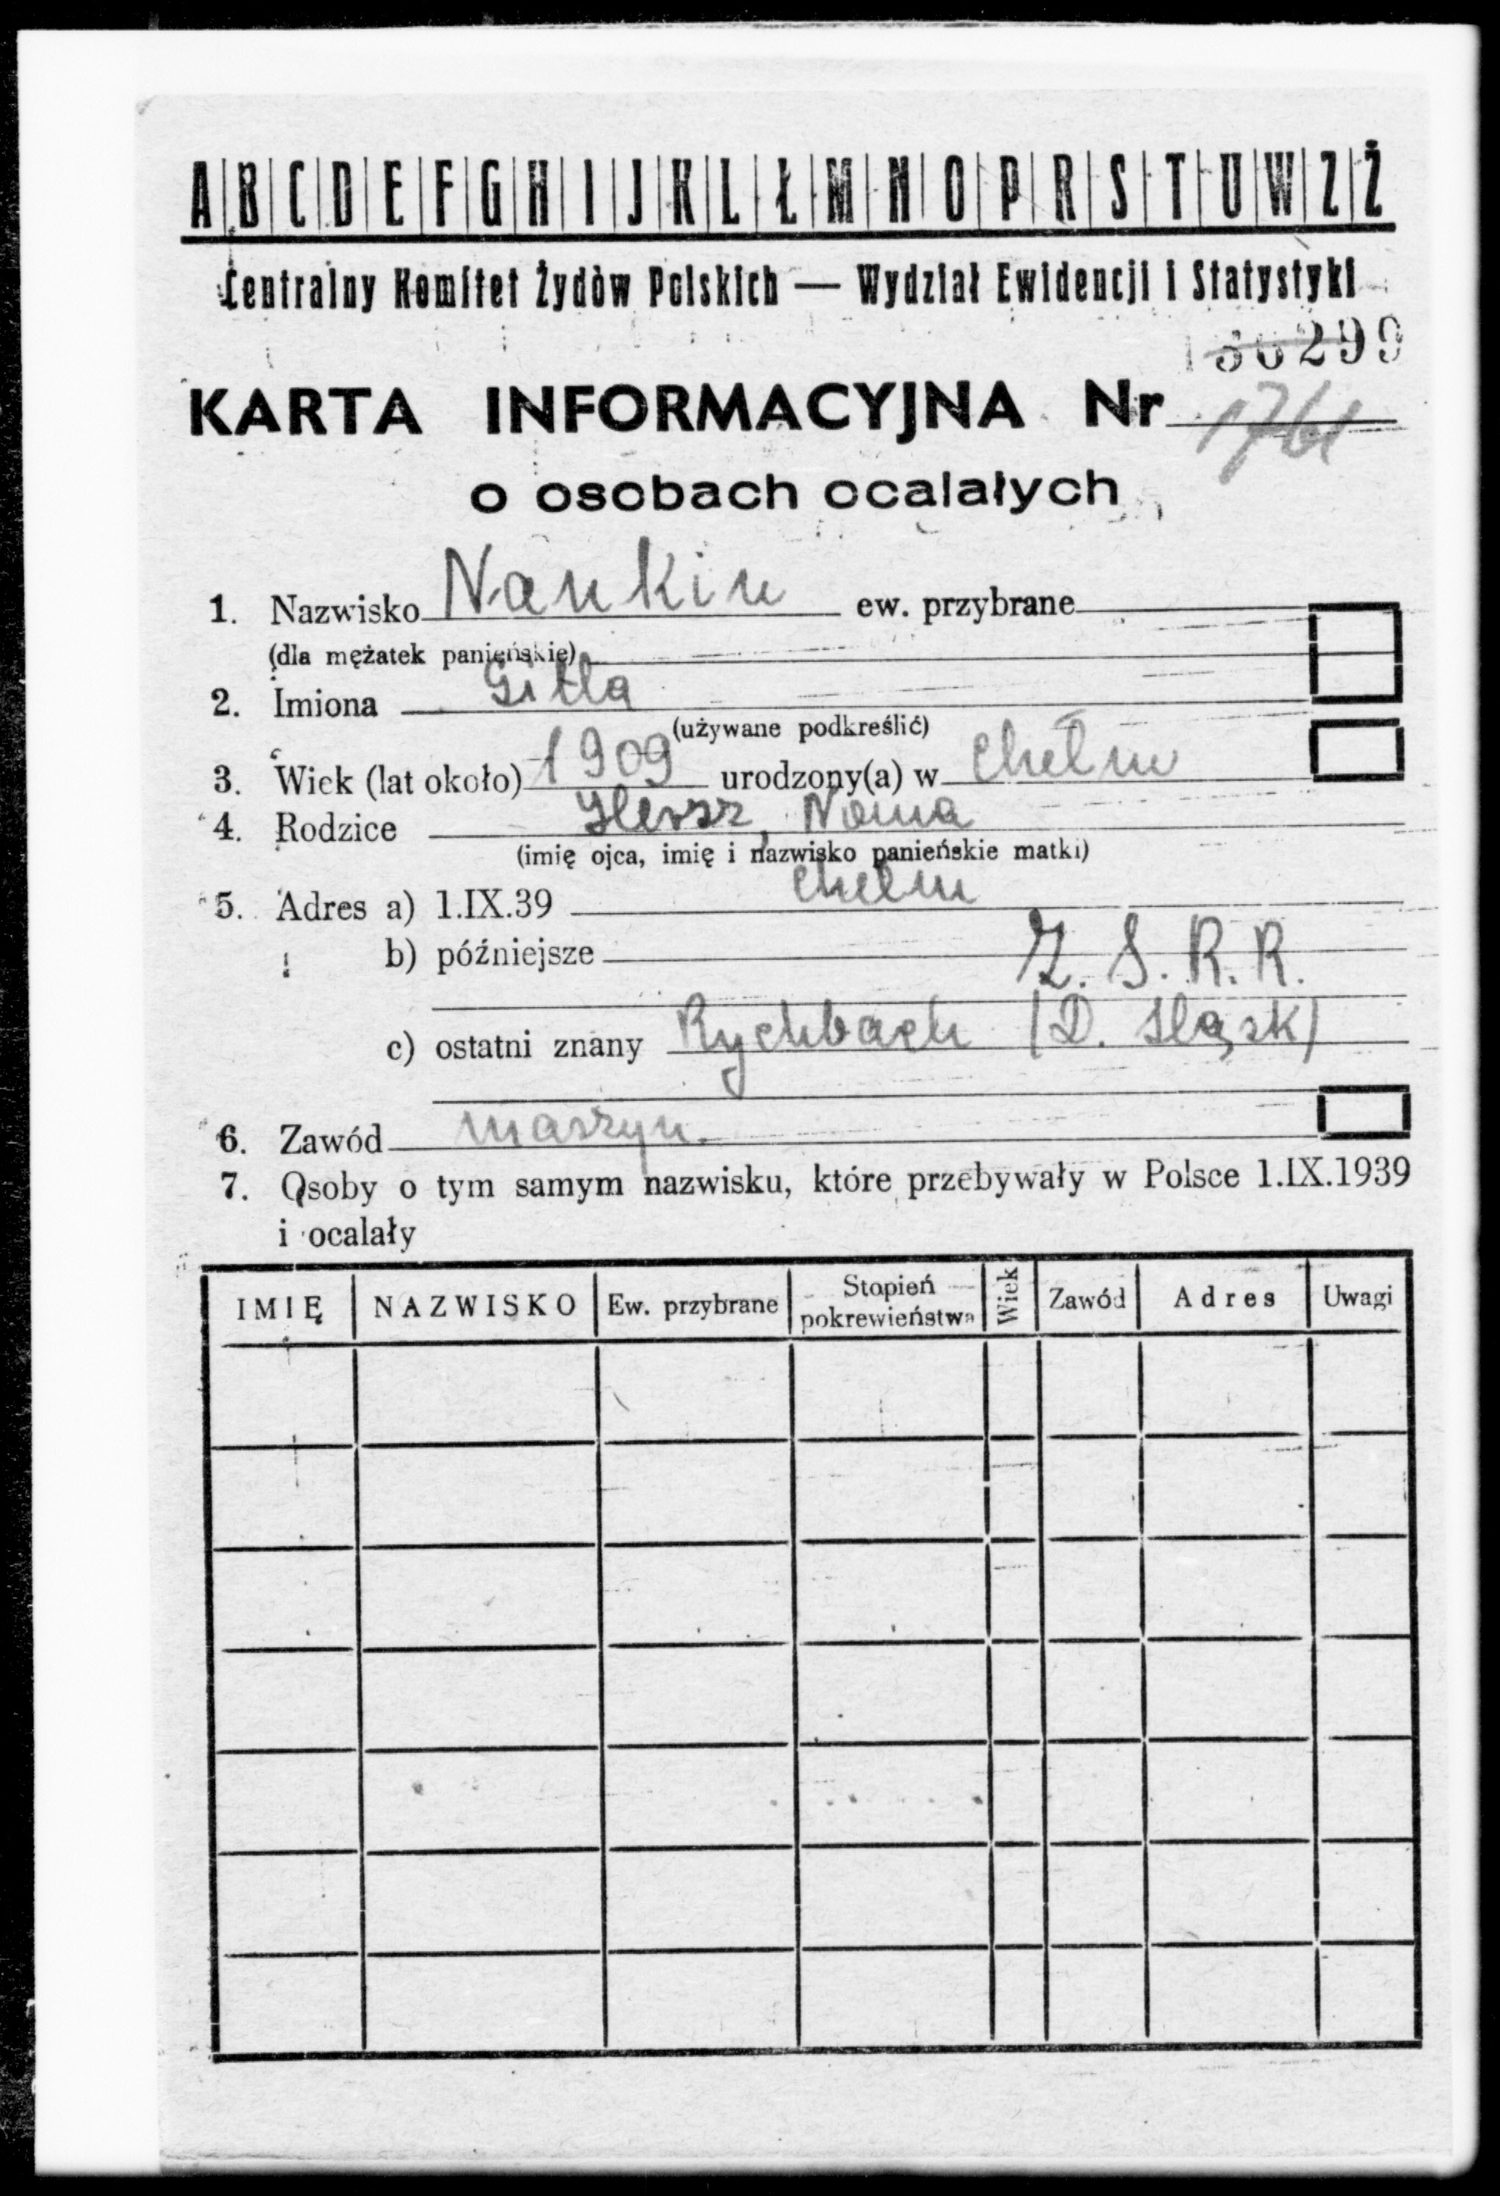 A B C D E F G H I J K L Ł M N O P R S T U W Z Ż
Centralny Komitet Żydów Polskich — Wydział Ewidencji i Statystyki
299
KARTA INFORMACYJNA Nr 1761
o osobach ocalałych
1. Nazwisko Nankin ew. przybrane
(dla mężatek panieńskie)
2. Imiona Gitla
(używane podkreślić)
3. Wiek (lat około) 1909 urodzony(a) w Chełm
4. Rodzice Hersz, Noma
(imię ojca, imię i nazwisko panieńskie matki)
5. Adres a) 1.IX.39 Chełm
b) późniejsze Z.S.R.R.
c) ostatni znany Rychbach (D. Sląsk)
6. Zawód maszyn.
7. Osoby o tym samym nazwisku, które przebywały w Polsce 1.IX.1939
i ocalały
IMIĘ NAZWISKO Ew. przybrane Stopień pokrewieństwa Wiek Zawód Adres Uwagi